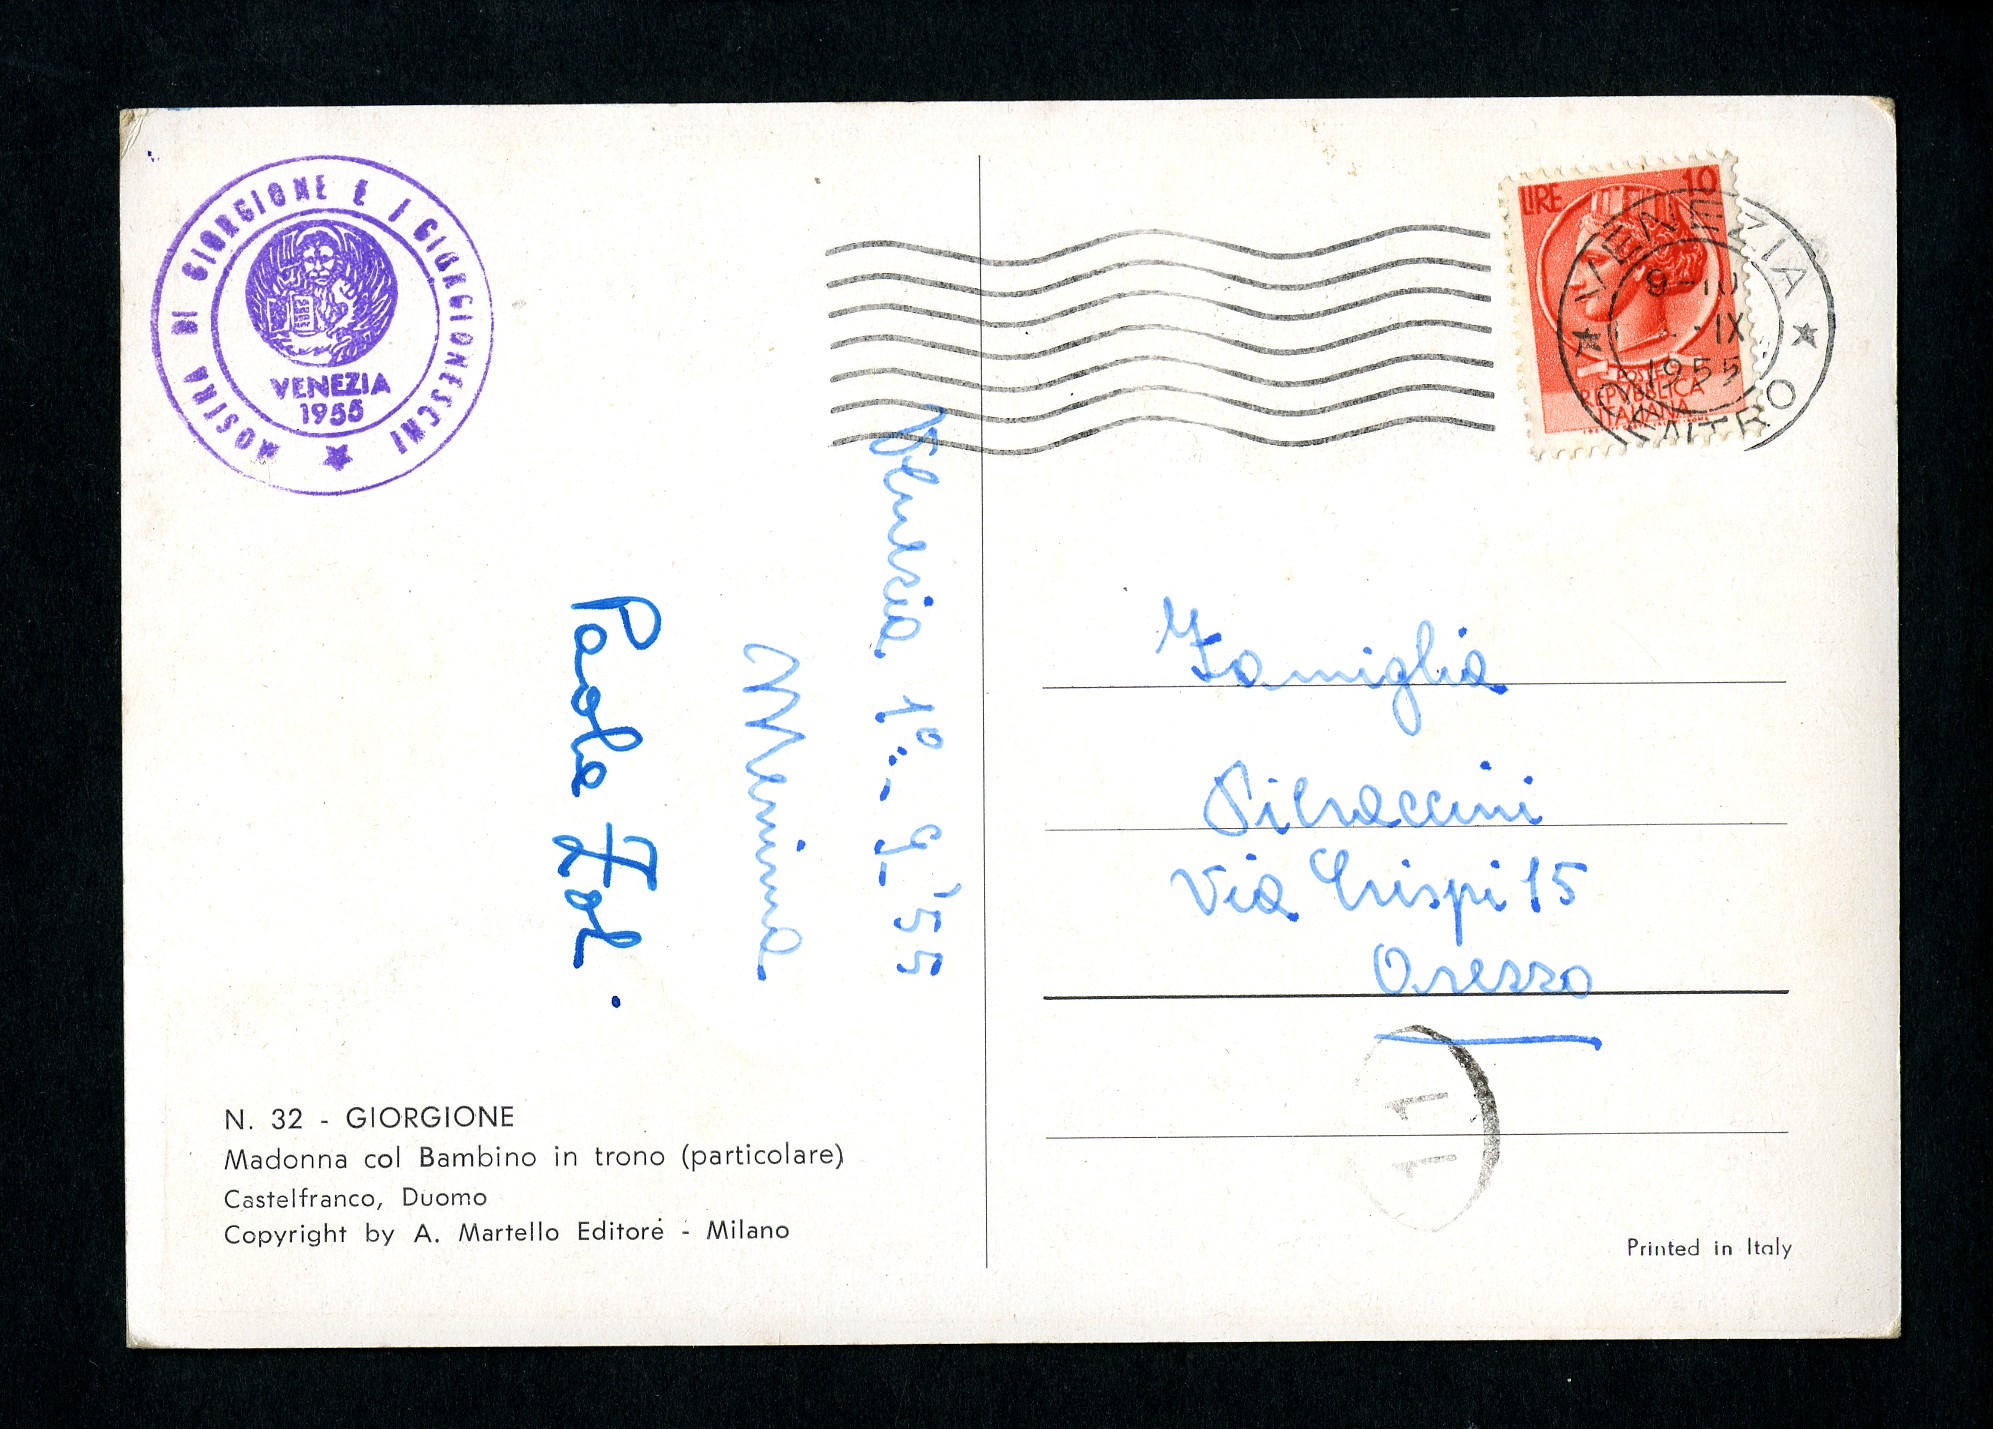 MOSTRA DI GIORGIONE E I GIORGIONESCHI
VENEZIA
1955
Venezia 1°.-9-'55
Mimma
Paola Zol.
N. 32 - GIORGIONE
Madonna col Bambino in trono (particolare)
Castelfranco, Duomo
Copyright by A. Martello Editore - Milano
LIRE 10
POSTE
REPVBBLICA
ITALIANA
VENEZIA
9-10
-IX
1955
CENTRO
Famiglia
Via Crispi 15
Arezzo
11
Printed in Italy